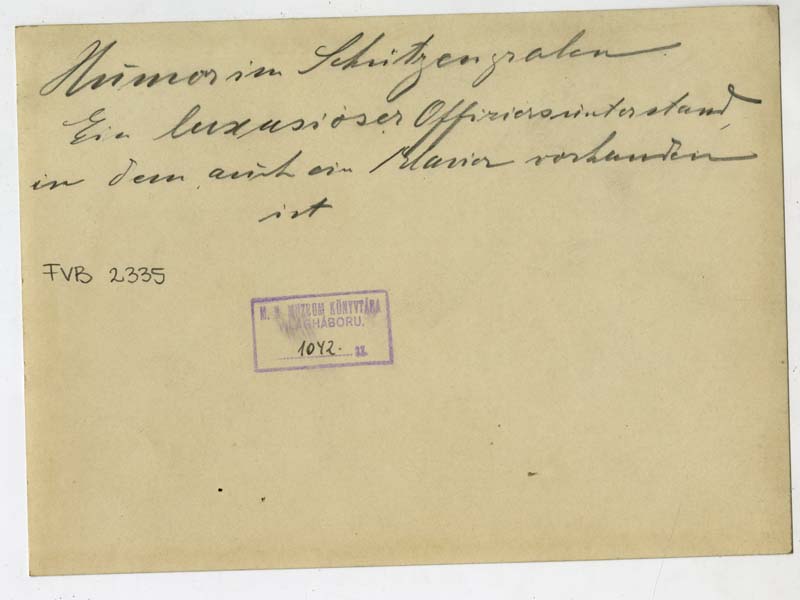 Humor im Schützengraben.
Ein luxusiöser Offiziersunterstand,
in dem auch ein Klavier vorhanden
ist
FVB 2335
M. N. MUZEUM KÖNYVTÁRA
VILÁGHÁBORU.
1042.